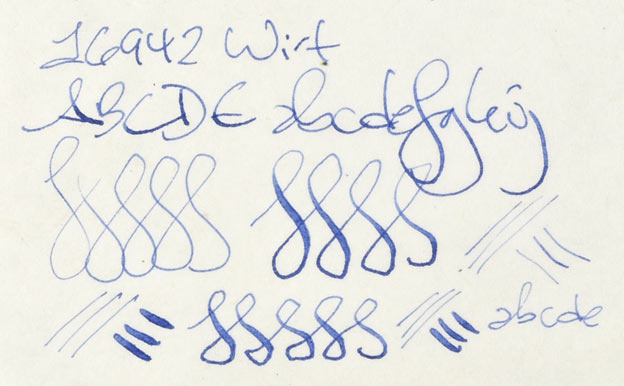 16942 Wirt
ABCDE abcdefghij
abcde